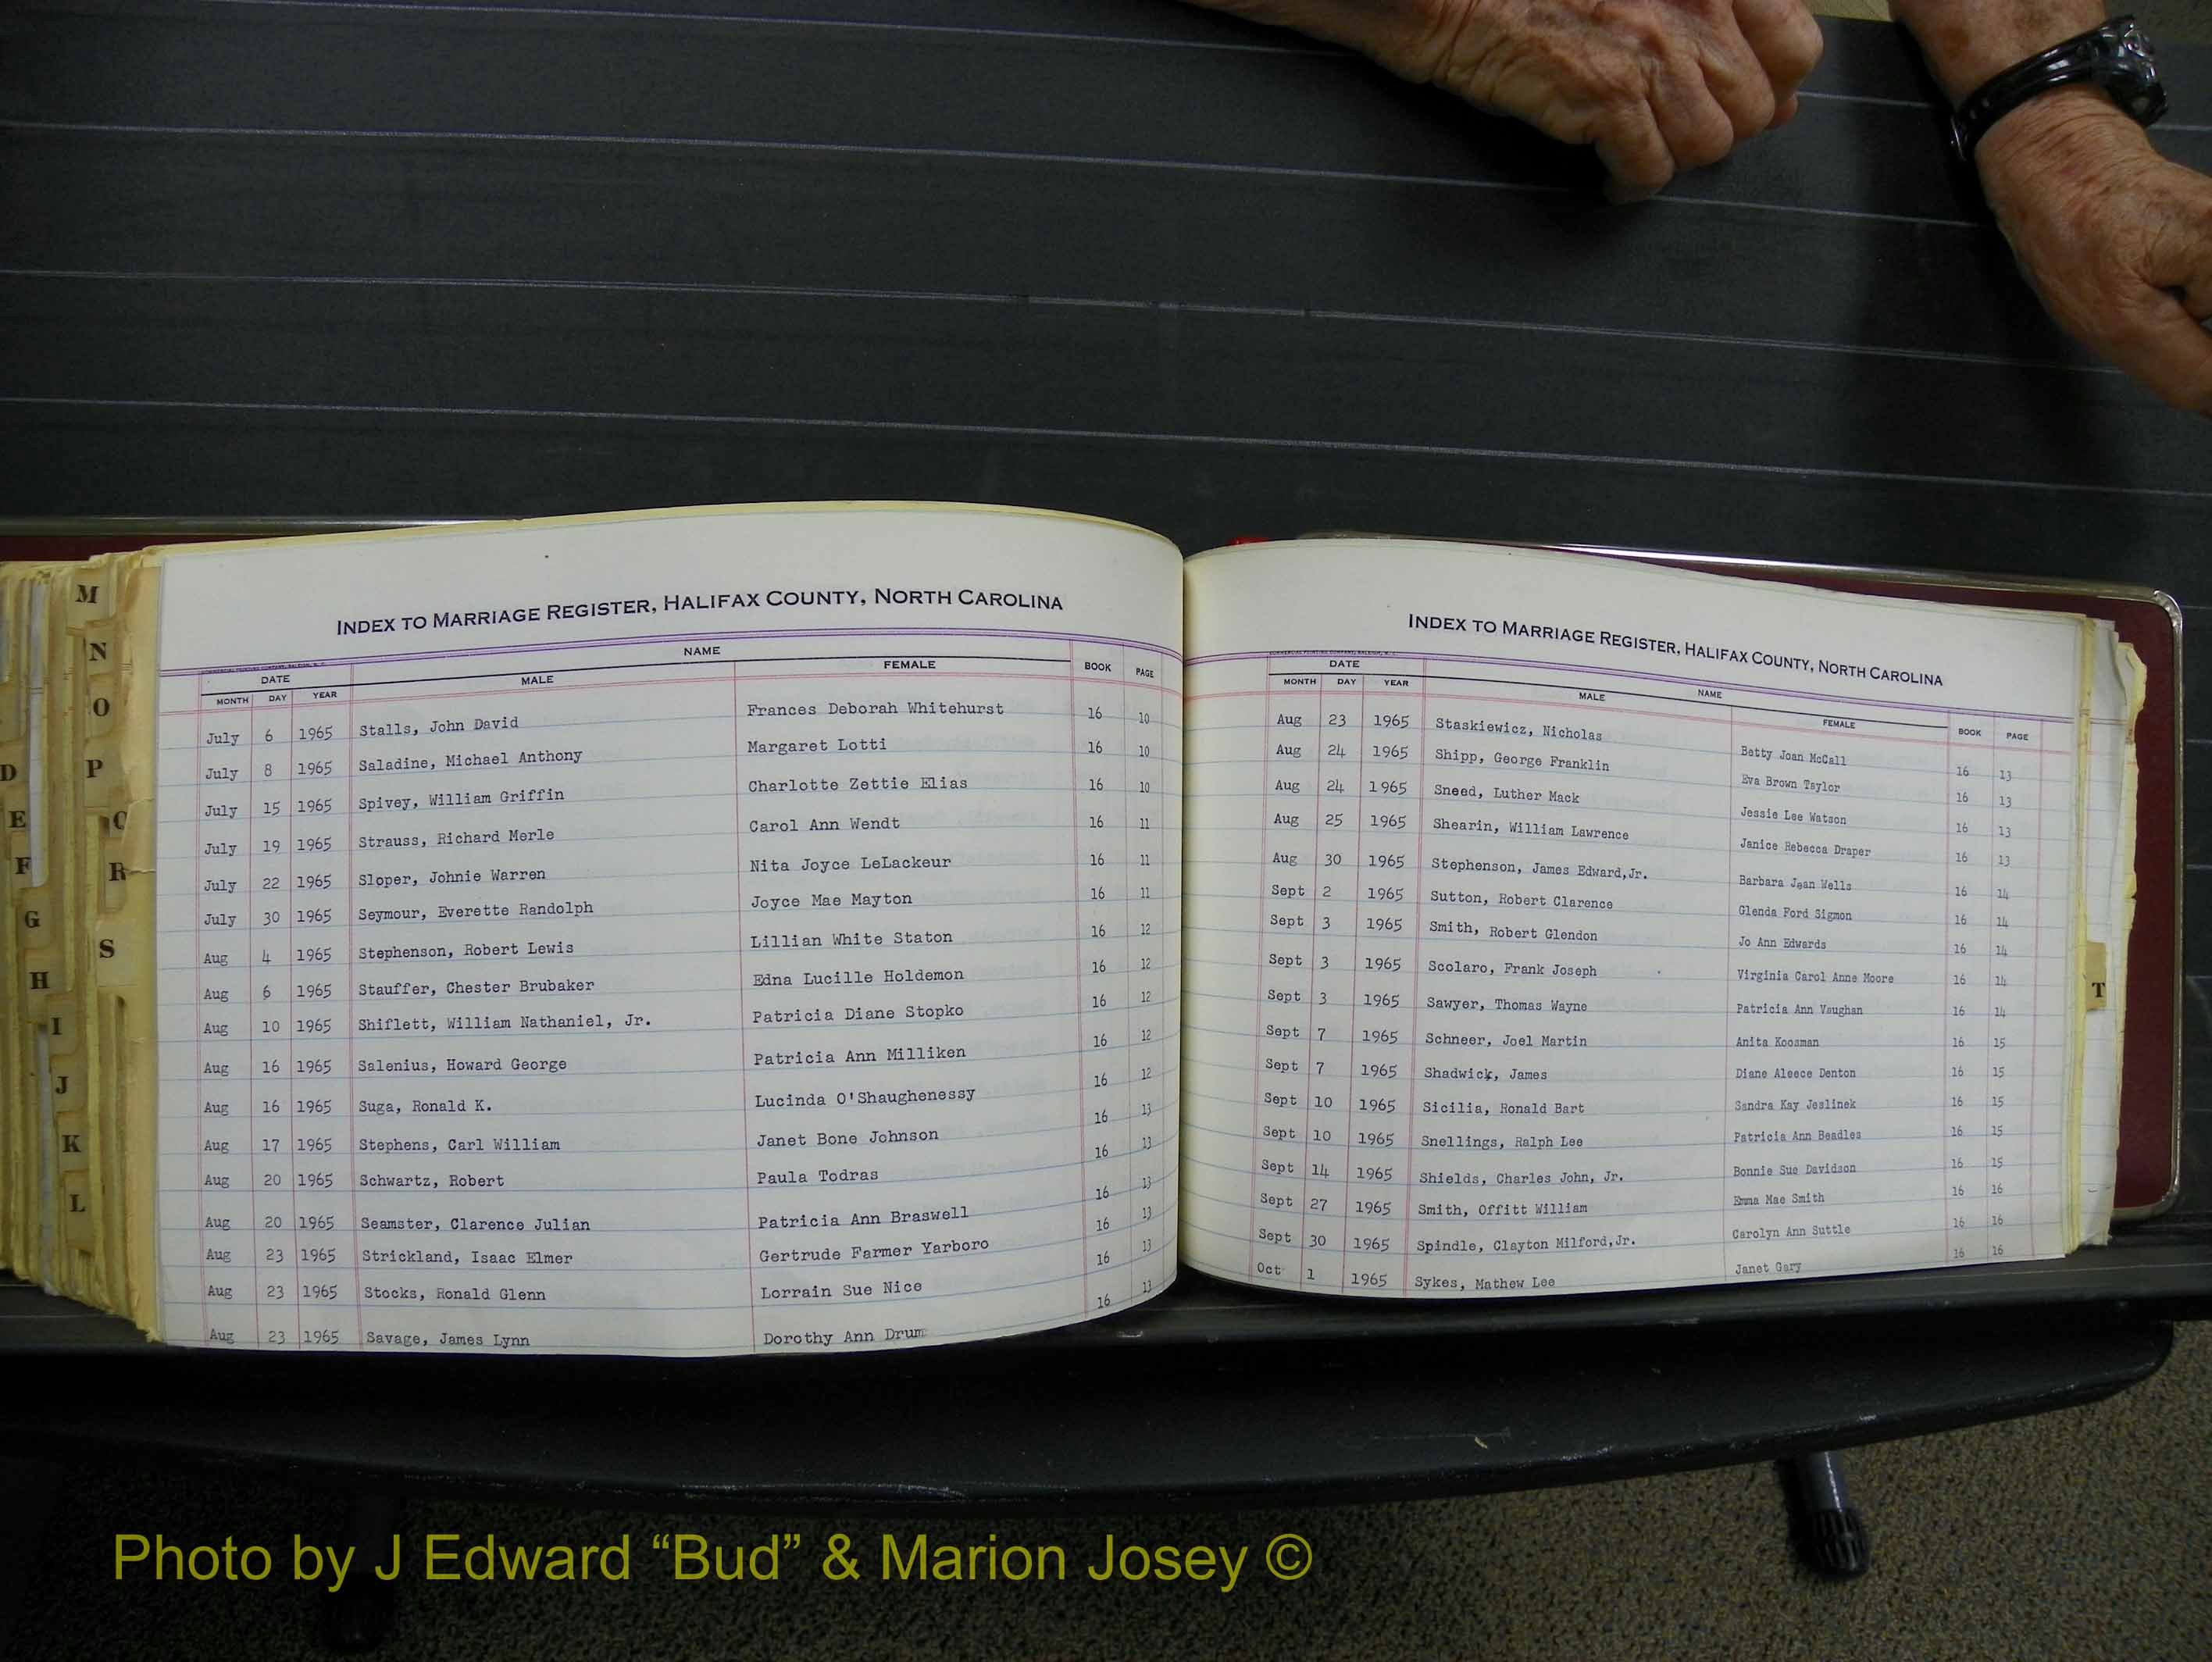 INDEX TO MARRIAGE REGISTER, HALIFAX COUNTY, NORTH CAROLINA
DATE NAME
MONTH DAY YEAR MALE FEMALE BOOK PAGE
July 6 1965 Stalls, John David Frances Deborah Whitehurst 16 10
July 8 1965 Saladine, Michael Anthony Margaret Lotti 16 10
July 15 1965 Spivey, William Griffin Charlotte Zettie Elias 16 10
July 19 1965 Strauss, Richard Merle Carol Ann Wendt 16 11
July 22 1965 Sloper, Johnie Warren Nita Joyce LeLackeur 16 11
July 30 1965 Seymour, Everette Randolph Joyce Mae Mayton 16 11
Aug 4 1965 Stephenson, Robert Lewis Lillian White Staton 16 12
Aug 6 1965 Stauffer, Chester Brubaker Edna Lucille Holdemon 16 12
Aug 10 1965 Shiflett, William Nathaniel, Jr. Patricia Diane Stopko 16 12
Aug 16 1965 Salenius, Howard George Patricia Ann Milliken 16 12
Aug 16 1965 Suga, Ronald K. Lucinda O'Shaughenessy 16 12
Aug 17 1965 Stephens, Carl William Janet Bone Johnson 16 13
Aug 20 1965 Schwartz, Robert Paula Todras 16 13
Aug 20 1965 Seamster, Clarence Julian Patricia Ann Braswell 16 13
Aug 23 1965 Strickland, Isaac Elmer Gertrude Farmer Yarboro 16 13
Aug 23 1965 Stocks, Ronald Glenn Lorrain Sue Nice 16 13
Aug 23 1965 Savage, James Lynn Dorothy Ann Drum 16 13
INDEX TO MARRIAGE REGISTER, HALIFAX COUNTY, NORTH CAROLINA
DATE NAME
MONTH DAY YEAR MALE FEMALE BOOK PAGE
Aug 23 1965 Staskiewicz, Nicholas Betty Joan McCall 16 13
Aug 24 1965 Shipp, George Franklin Eva Brown Taylor 16 13
Aug 24 1965 Sneed, Luther Mack Jessie Lee Watson 16 13
Aug 25 1965 Shearin, William Lawrence Janice Rebecca Draper 16 13
Aug 30 1965 Stephenson, James Edward,Jr. Barbara Jean Wells 16 14
Sept 2 1965 Sutton, Robert Clarence Glenda Ford Sigmon 16 14
Sept 3 1965 Smith, Robert Glendon Jo Ann Edwards 16 14
Sept 3 1965 Scolaro, Frank Joseph Virginia Carol Anne Moore 16 14
Sept 3 1965 Sawyer, Thomas Wayne Patricia Ann Vaughan 16 14
Sept 7 1965 Schneer, Joel Martin Anita Koosman 16 15
Sept 7 1965 Shadwick, James Diane Aleece Denton 16 15
Sept 10 1965 Sicilia, Ronald Bart Sandra Kay Jeslinek 16 15
Sept 10 1965 Snellings, Ralph Lee Patricia Ann Beadles 16 15
Sept 14 1965 Shields, Charles John, Jr. Bonnie Sue Davidson 16 15
Sept 27 1965 Smith, Offitt William Emma Mae Smith 16 16
Sept 30 1965 Spindle, Clayton Milford,Jr. Carolyn Ann Suttle 16 16
Oct 1 1965 Sykes, Mathew Lee Janet Gary 16 16
D
E
F
G
H
I
J
K
L
M
N
O
P
R
S
T
Photo by J Edward “Bud” & Marion Josey ©